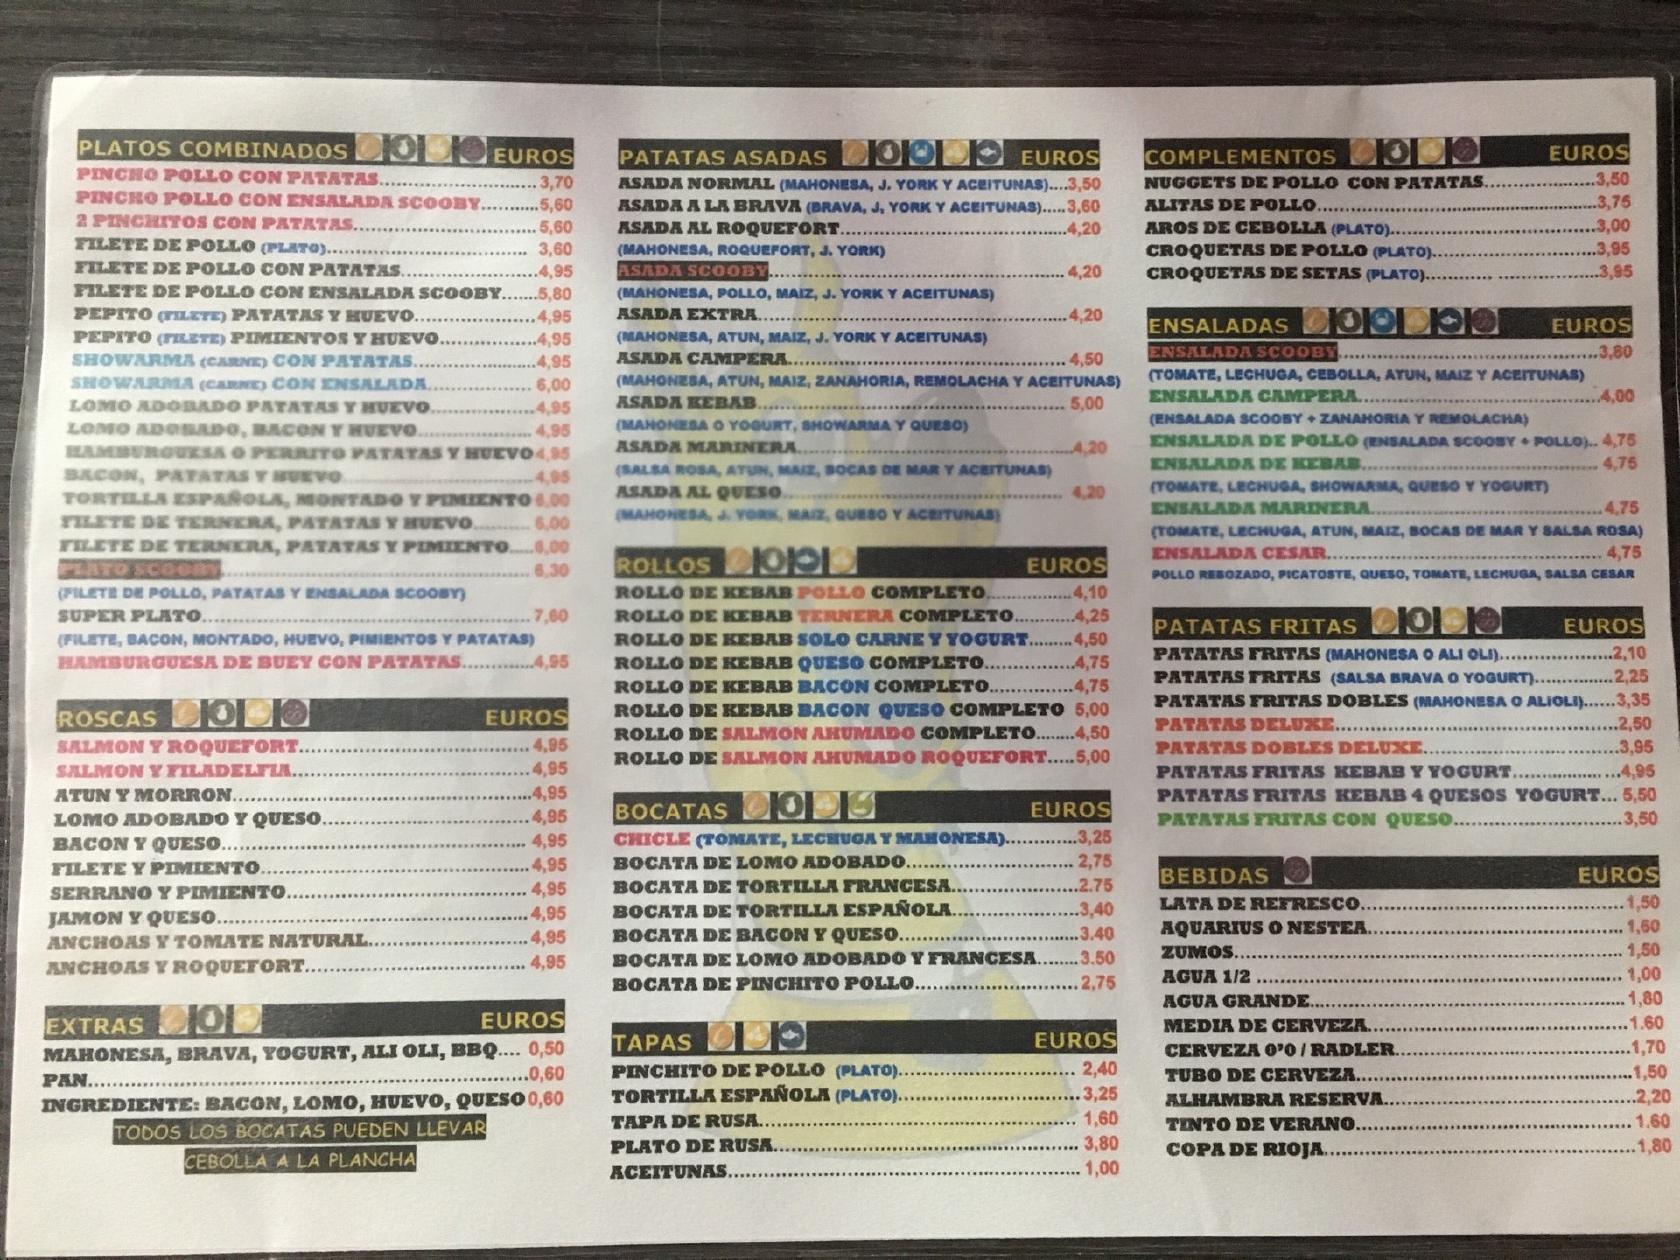 PLATOS COMBINADOS EUROS
PINCHO POLLO CON PATATAS 3,70
PINCHO POLLO CON ENSALADA SCOOBY 5,60
2 PINCHITOS CON PATATAS 5,60
FILETE DE POLLO (PLATO) 3,60
FILETE DE POLLO CON PATATAS 4,95
FILETE DE POLLO CON ENSALADA SCOOBY 5,80
PEPITO (FILETE) PATATAS Y HUEVO 4,95
PEPITO (FILETE) PIMIENTOS Y HUEVO 4,95
SHOWARMA (CARNE) CON PATATAS 4,95
SHOWARMA (CARNE) CON ENSALADA 6,00
LOMO ADOBADO PATATAS Y HUEVO 4,95
LOMO ADOBADO, BACON Y HUEVO 4,95
HAMBURGUESA O PERRITO PATATAS Y HUEVO 4,95
BACON, PATATAS Y HUEVO 4,95
TORTILLA ESPAÑOLA, MONTADO Y PIMIENTO 6,00
FILETE DE TERNERA, PATATAS Y HUEVO 6,00
FILETE DE TERNERA, PATATAS Y PIMIENTO 6,00
PLATO SCOOBY 6,30
(FILETE DE POLLO, PATATAS Y ENSALADA SCOOBY)
SUPER PLATO 7,60
(FILETE, BACON, MONTADO, HUEVO, PIMIENTOS Y PATATAS)
HAMBURGUESA DE BUEY CON PATATAS 4,95
ROSCAS EUROS
SALMON Y ROQUEFORT 4,95
SALMON Y FILADELFIA 4,95
ATUN Y MORRON 4,95
LOMO ADOBADO Y QUESO 4,95
BACON Y QUESO 4,95
FILETE Y PIMIENTO 4,95
SERRANO Y PIMIENTO 4,95
JAMON Y QUESO 4,95
ANCHOAS Y TOMATE NATURAL 4,95
ANCHOAS Y ROQUEFORT 4,95
EXTRAS EUROS
MAHONESA, BRAVA, YOGURT, ALI OLI, BBQ 0,50
PAN 0,60
INGREDIENTE: BACON, LOMO, HUEVO, QUESO 0,60
TODOS LOS BOCATAS PUEDEN LLEVAR
CEBOLLA A LA PLANCHA
PATATAS ASADAS EUROS
ASADA NORMAL (MAHONESA, J. YORK Y ACEITUNAS) 3,50
ASADA A LA BRAVA (BRAVA, J, YORK Y ACEITUNAS) 3,60
ASADA AL ROQUEFORT 4,20
(MAHONESA, ROQUEFORT, J. YORK)
ASADA SCOOBY 4,20
(MAHONESA, POLLO, MAIZ, J. YORK Y ACEITUNAS)
ASADA EXTRA 4,20
(MAHONESA, ATUN, MAIZ, J. YORK Y ACEITUNAS)
ASADA CAMPERA 4,50
(MAHONESA, ATUN, MAIZ, ZANAHORIA, REMOLACHA Y ACEITUNAS)
ASADA KEBAB 5,00
(MAHONESA O YOGURT, SHOWARMA Y QUESO)
ASADA MARINERA 4,20
(SALSA ROSA, ATUN, MAIZ, BOCAS DE MAR Y ACEITUNAS)
ASADA AL QUESO 4,20
(MAHONESA, J. YORK, MAIZ, QUESO Y ACEITUNAS)
ROLLOS EUROS
ROLLO DE KEBAB POLLO COMPLETO 4,10
ROLLO DE KEBAB TERNERA COMPLETO 4,25
ROLLO DE KEBAB SOLO CARNE Y YOGURT 4,50
ROLLO DE KEBAB QUESO COMPLETO 4,75
ROLLO DE KEBAB BACON COMPLETO 4,75
ROLLO DE KEBAB BACON QUESO COMPLETO 5,00
ROLLO DE SALMON AHUMADO COMPLETO 4,50
ROLLO DE SALMON AHUMADO ROQUEFORT 5,00
BOCATAS EUROS
CHICLE (TOMATE, LECHUGA Y MAHONESA) 3,25
BOCATA DE LOMO ADOBADO 2,75
BOCATA DE TORTILLA FRANCESA 2.75
BOCATA DE TORTILLA ESPAÑOLA 3,40
BOCATA DE BACON Y QUESO 3.40
BOCATA DE LOMO ADOBADO Y FRANCESA 3.50
BOCATA DE PINCHITO POLLO 2,75
TAPAS EUROS
PINCHITO DE POLLO (PLATO) 2,40
TORTILLA ESPAÑOLA (PLATO) 3,25
TAPA DE RUSA 1,60
PLATO DE RUSA 3,80
ACEITUNAS 1,00
COMPLEMENTOS EUROS
NUGGETS DE POLLO CON PATATAS 3,50
ALITAS DE POLLO 3,75
AROS DE CEBOLLA (PLATO) 3,00
CROQUETAS DE POLLO (PLATO) 3,95
CROQUETAS DE SETAS (PLATO) 3,95
ENSALADAS EUROS
ENSALADA SCOOBY 3,80
(TOMATE, LECHUGA, CEBOLLA, ATUN, MAIZ Y ACEITUNAS)
ENSALADA CAMPERA 4,00
(ENSALADA SCOOBY + ZANAHORIA Y REMOLACHA)
ENSALADA DE POLLO (ENSALADA SCOOBY + POLLO) 4,75
ENSALADA DE KEBAB 4,75
(TOMATE, LECHUGA, SHOWARMA, QUESO Y YOGURT)
ENSALADA MARINERA 4,75
(TOMATE, LECHUGA, ATUN, MAIZ, BOCAS DE MAR Y SALSA ROSA)
ENSALADA CESAR 4,75
POLLO REBOZADO, PICATOSTE, QUESO, TOMATE, LECHUGA, SALSA CESAR
PATATAS FRITAS EUROS
PATATAS FRITAS (MAHONESA O ALI OLI) 2,10
PATATAS FRITAS (SALSA BRAVA O YOGURT) 2,25
PATATAS FRITAS DOBLES (MAHONESA O ALIOLI) 3,35
PATATAS DELUXE 2,50
PATATAS DOBLES DELUXE 3,95
PATATAS FRITAS KEBAB Y YOGURT 4,95
PATATAS FRITAS KEBAB 4 QUESOS YOGURT 5,50
PATATAS FRITAS CON QUESO 3,50
BEBIDAS EUROS
LATA DE REFRESCO 1,50
AQUARIUS O NESTEA 1,60
ZUMOS 1,50
AGUA 1/2 1,00
AGUA GRANDE 1,80
MEDIA DE CERVEZA 1.60
CERVEZA 0'0 / RADLER 1,70
TUBO DE CERVEZA 1,50
ALHAMBRA RESERVA 2,20
TINTO DE VERANO 1.60
COPA DE RIOJA 1,80